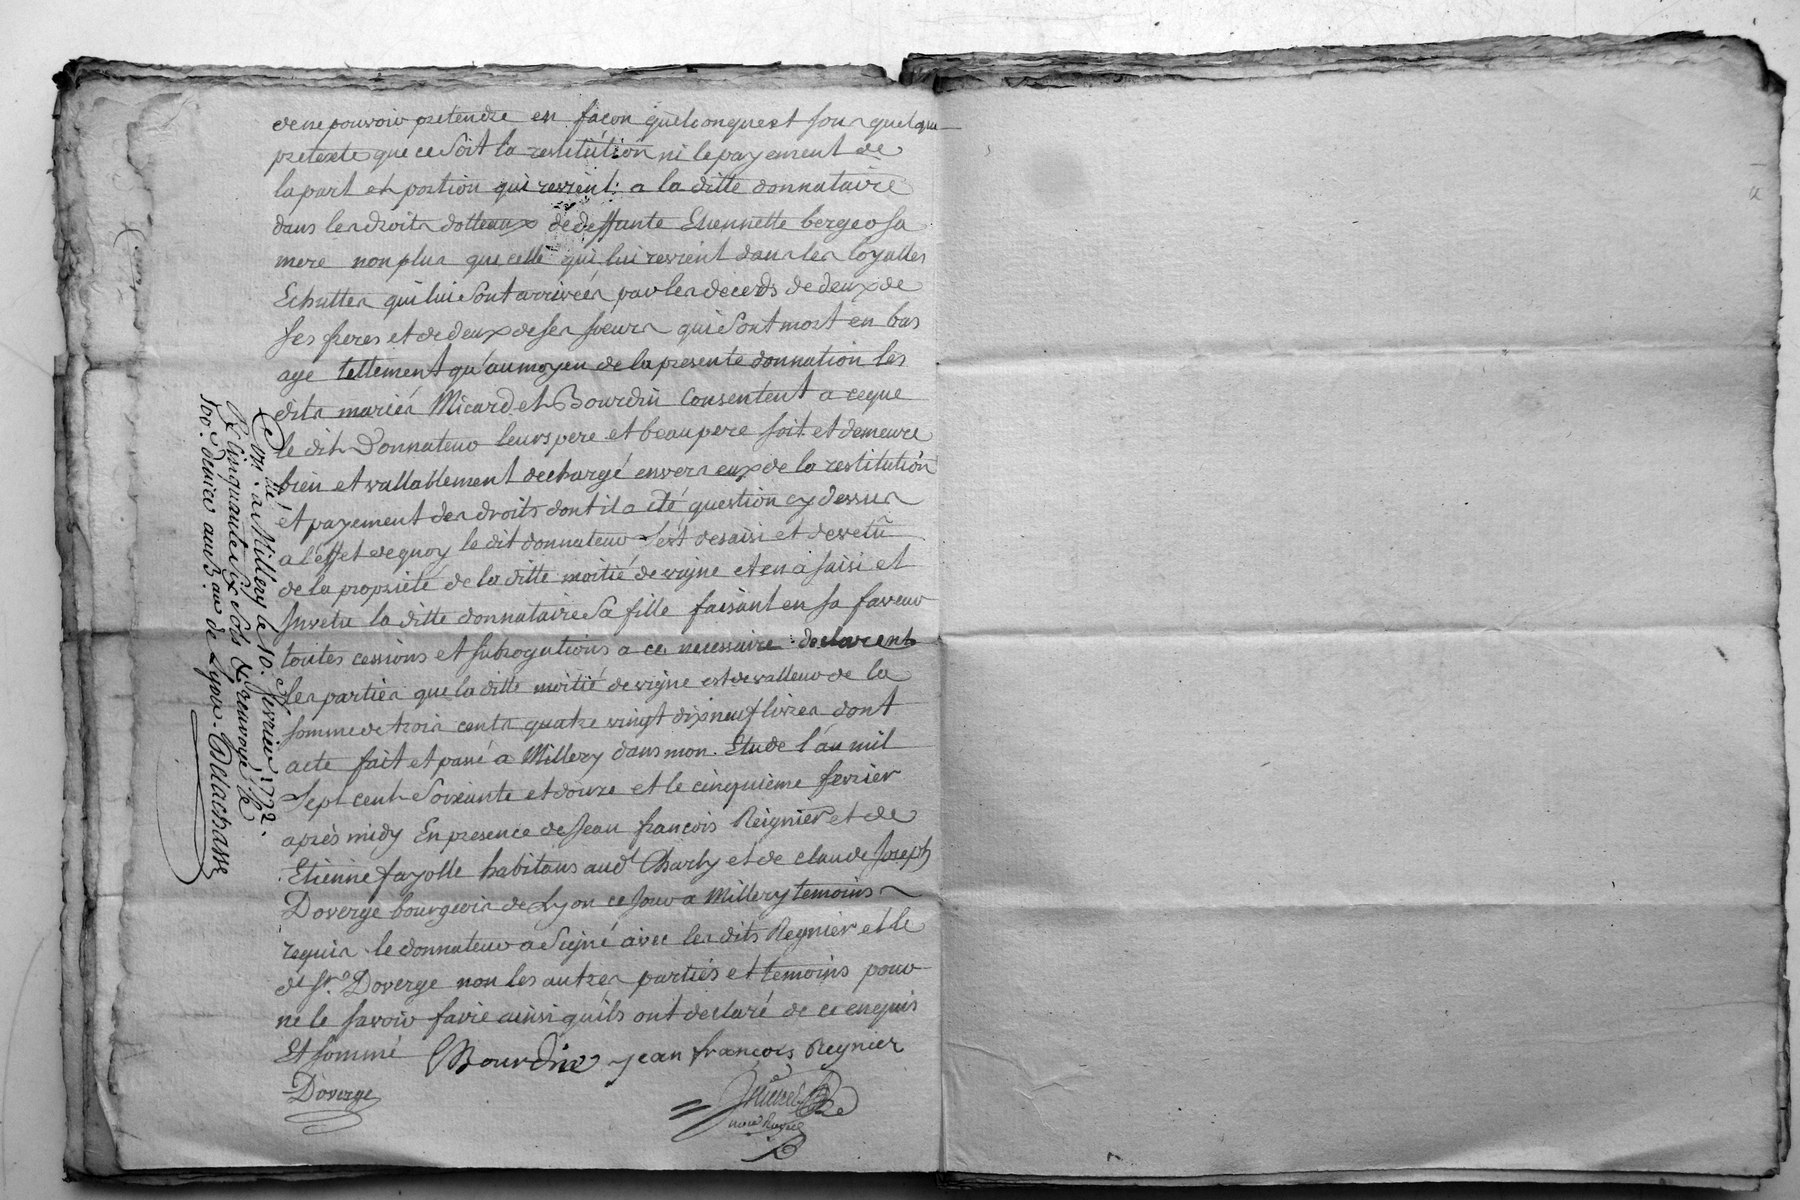 de ne pouvoir pretendre en façon quelconque et sous quelque
pretexte que ce soit la restitution ni le payement de
la part et portion qui revient a la ditte donnataire
dans les droits dotteaux de deffunte Etiennette bergeo sa
mere non plus que celle qui lui revient dans les loyalles
Echuttes qui lui sont arrivées par les deceds de deux de
ses freres et de deux de ses soeurs qui sont mort en bas
age tellement qu'au moyen de la presente donnation les
dits mariés Micard et Bourdin Consentent a ce que
le dit Donnateur leurs pere et beaupere soit et demeure
bien et vallablement dechargé envers eux de la restitution
et payement des droits dont il a été question cy dessus
a l'effet de quoy le dit donnateur s'est desaisi et devetu
de la propriété de la ditte moitié de vigne et en a saisi et
Invetu la ditte donnataire sa fille faisant en sa faveur
toutes cessions et subrogations a ce necessaire declarent
les parties que la ditte moitié de vigne est de valleur de la
somme de trois cents quatre vingt dix neuf livres dont
acte fait et passé a Millery dans mon Etude l'an mil
sept cent soixante et douze et le cinquième fevrier
après midy En presence de Jean françois Reignier et de
Etienne fayolle habitans aud Charly et de claude Joseph
Doverge bourgeois de Lyon ce jour a Millery temoins
requis le donnateur a signé avec les dits Regnier et le
dt Sr. Doverge non les autres parties et temoins pour
ne le savoir faire ainsi quils ont declaré de ce enquis
Et sommé CBourdin jean françois Regnier
Doverge
Con.lé a Millery le 10. Fevrier 1772.
R. Cinquante six sols & renvoyé le
100.e denier au B.au de Lyon. Delachasse